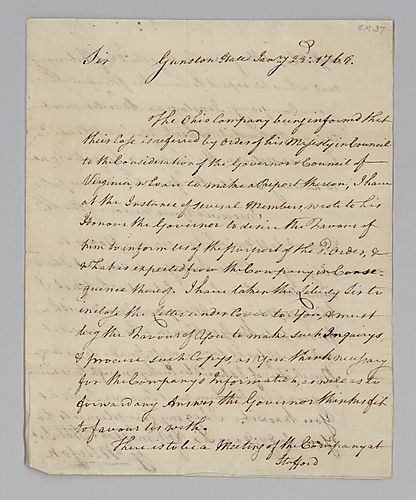 GM-37
Sir Gunston-Hall Janry 23d: 1768.
The Ohio Company being informed that
their Case is referred by Order of his Majesty in Council
to the Consideration of the Governor & Council of
Virginia, who are to make a Report thereon, I have
at the Instance of several Members, wrote to his
Honour the Governor to desire the Favour of
him to inform Us of the purport of the sd. Order, &
what is expected from the Company in Conse-
quence thereof. I have taken the Liberty Sir to
inclose the Letter under Cover to You, & must
beg the Favour of You to make such Inquirys
& procure such Copys, as You think necessary
for the Company's Information, as well as to
forward any Answer the Governor thinks fit
to favour Us with.
There is to be a Meeting of the Company at
Stafford